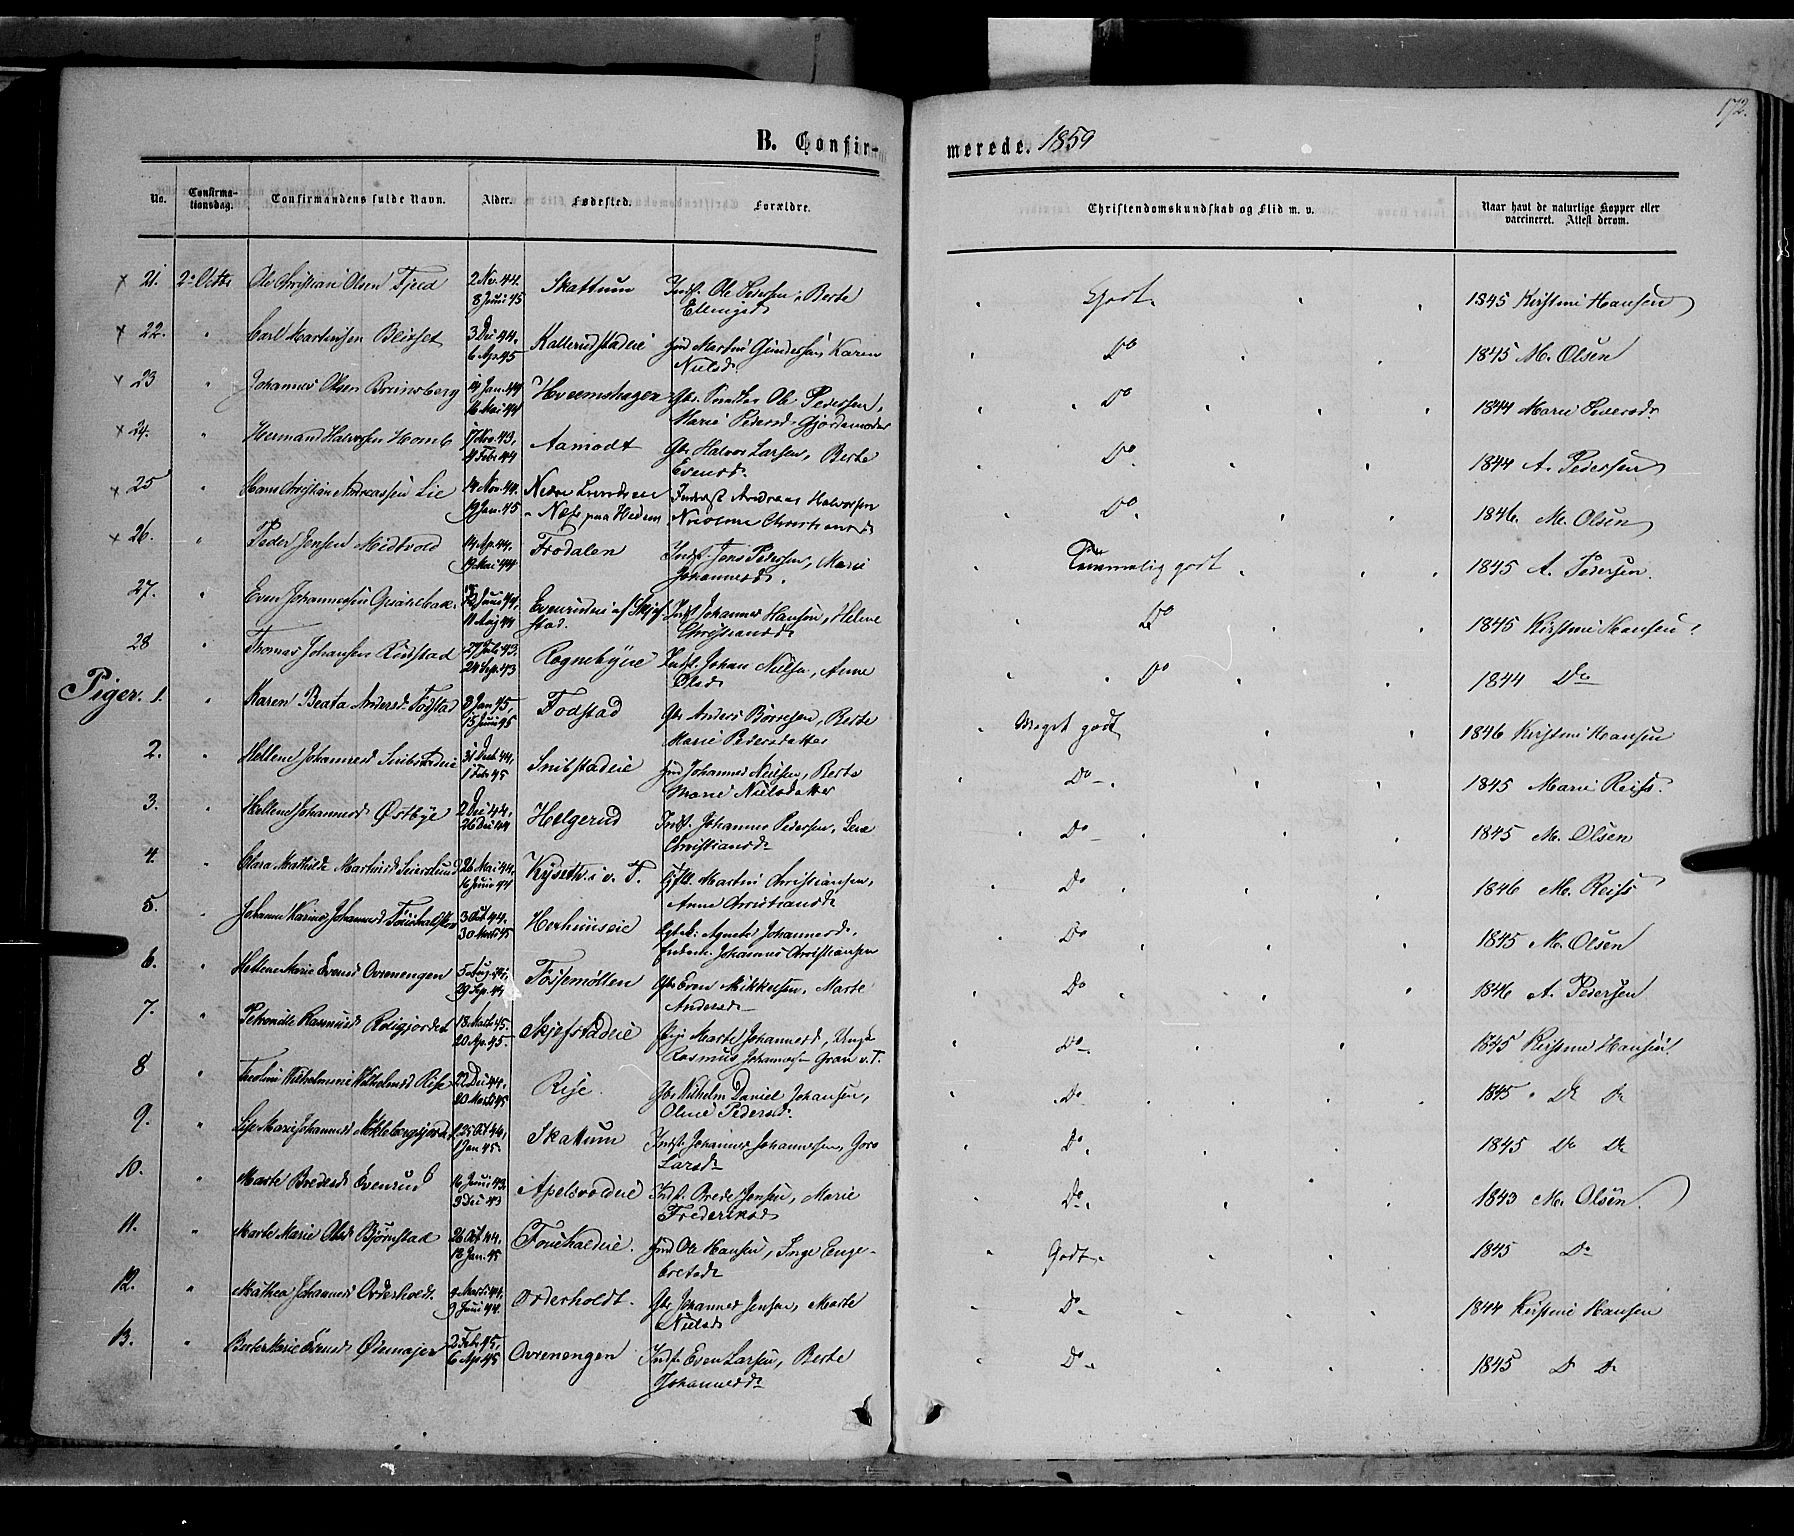 172.
B. Confirmerede. 1859
No. Confirmationsdag. Confirmandens fulde Navn. Alder. Fødested. Forældre. Christendomskundskab og Flid m. v. Naar havt de naturlige Kopper eller vaccineret. Attest derom.
x 21. 2. Octbr Ole Christian Olsen Fjeld 2 Nov. 44. Skattum Indst. Ole Pedersen, Berte Godt. 1845 Kirstine Hansen
8 Juni 45 Ellingsd.
x 22. " Carl Martinsen Blixset 3 Dec 44. Kallerudstadeie Ind Martin Gundersen, Karen Do 1845 M. Olsen
6 Ap. 45 Nielsd.
x 23 " Johannes Olsen Brunsberg Jan. 44 Hveemshagen Gbr. Ole Pedersen, Do 1844 Marie Pedersdr
16 Mai 44 Marie Pedersd. Gjordemoder
x 24. " Herman Halvorsen Homb 17 Nov. 43, Aamodt Gbr Halvor Larsen, Berte Do 1844 A. Pedersen
4 Febr 44 Evensd.
x 25 " Hans Christian Andreassen Lie 14 Nov. 44. Nedre Inderst Andreas Halvorsen Do 1846. M. Olsen
19 Jan. 45 Næs paa Hedem Nicoline Christiansd.
x 26. " Peder Jensen Midtvold 14 Ap. 44. Frodalen Indst. Jens Pedersen, Marie Temmelig godt 1845 A. Pedersen.
19 Mai 44 Johannesd.
27. " Even Johannessen Juni 44. Evenrudeie af Skjef- Indst Johannes Hansen, Helene Do 1845 Kirstine Hansen
11 Aug 44 stad. Christiansd.
28 " Thomas Johansen Rudstad 27 Juli 43. Rognebyeie Indst. Johan Nielsen, Anne Do 1844 Do
24 Sep. 43 Olsd.
Piger. 1. " Karen Beata Andersd Fodstad 8 Jan 45, Fodstad Gbr Anders Børresen, Berte Meget godt 1846 Kirstine Hansen
15 Juni 45 Marie Pedersdatter
2. " Hellene Johannesd Snibstadeie 31 Decb 44, Snibstadeie Ind Johannes Nielsen, Berte Do 1845 Marie Reiss.
1 Feb. 45 Marie Nielsdatter
3. " Hellene Johannesd Østbye 2 Dec 44, Helgerud Indst. Johannes Pedersen, Lene Do 1845 M. Olsen
26 Dec 44 Christiansd.
4. " Clara Mathilde Martinsd Seierslund 26 Mai 44, Kyseth i v. T. Martin Christiansen, Do 1846 M. Reiss
16 Juni 44 Anne Christiansd.
5. " Johanne Karine Johannesd 3 Oct. 44. Hexhuuseie Agnete Johannesd, Do 1845 M. Olsen
30 Marts 45 Johannes Christiansen
6. " Hellene Marie Evensd Ovrenengen 5 Aug. 44, Fossemøllen Gbr Even Mikkelsen, Marte Do 1846 A. Pedersen
29 Sep. 44 Andersd.
7. " Petronille Rasmusd Roligjordet 18 Marts 45. Skjefstadeie Pige Marte Johannesd, Ungk 1845 Kirstine Hansen
20 Ap. 45. Rasmus Johannesen Gran v. T. Do
8 " Wilhelmine Wilhelmsd Rise 22 Dec 44, Rise. Gbr Wilhelm Daniel Johansen, Do 1845 Do Do
20 Marts 45 Oline Pedersd.
9. " Lise Marie Johannesd 25 Oct 44, Skattum Indst. Johannes Johannessen, Goro Do 1845 Do Do
1 Jan 45. Larsd.
10. " Marte Bredesd Evenrud 16 Juni 43. Apelsvoldeie Indst. Brede Jensen, Marie Do 1843 M. Olsen.
3 Dec 43 Frederiksd.
11. " Marte Marie Olsd Bjørnstad 26 Oct 44. Ind Ole Hansen, Inge Enge- Godt. 1845 Do
12 Jan. 45 bretsd.
12. " Mathea Johannesd Orderholdt. Marts 44. Orderholdt. Gbr Johannes Jensen, Marte Do 1844 Kirstine Hansen
9 Juni 44. Nielsd.
13. " Berte Marie Evensd Ødemajer 2 Feb 45, Ovrenengen Indst Even Larsen, Berte Do 1845 Do Do
6 Ap 45 Johannesd.